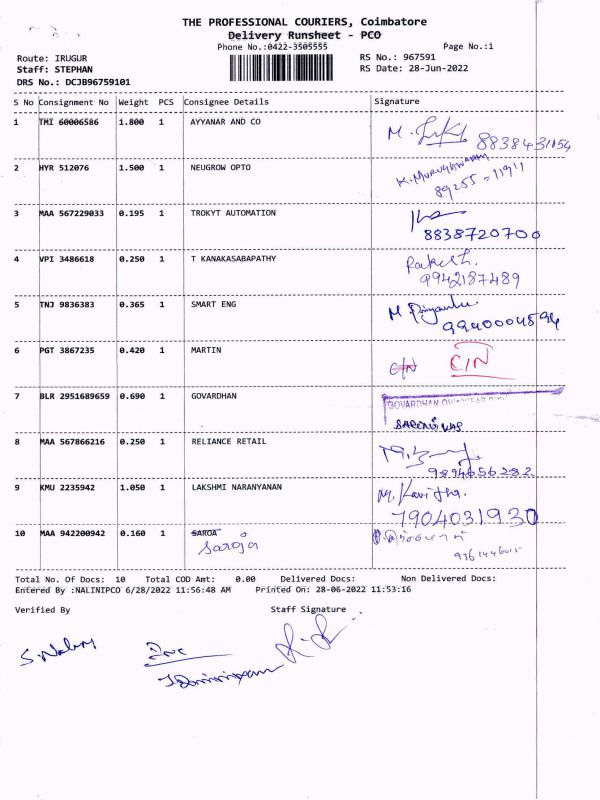 THE PROFESSIONAL COURIERS, Coimbatore
Delivery Runsheet - PCO
Phone No.:0422-3505555 Page No.:1
Route: IRUGUR RS No.: 967591
Staff: STEPHAN RS Date: 28-Jun-2022
DRS No.: DCJB96759101
S No Consignment No Weight PCS Consignee Details Signature
1 TMI 60006586 1.800 1 AYYANAR AND CO
M. 8838431154
2 HYR 512076 1.500 1 NEUGROW OPTO
89255-11911
3 MAA 567229033 0.195 1 TROKYT AUTOMATION
8838720700
4 VPI 3486618 0.250 1 T KANAKASABAPATHY
Rakesh.
9942187489
5 TNJ 9836383 0.365 1 SMART ENG
M
6 PGT 3867235 0.420 1 MARTIN
C/N C/N
7 BLR 2951689659 0.690 1 GOVARDHAN
GOVARDHAN
8 MAA 567866216 0.250 1 RELIANCE RETAIL
9894656282
9 KMU 2235942 1.050 1 LAKSHMI NARANYANAN
M. Kavitha.
7904031930
10 MAA 942200942 0.160 1 SAROA
Saroja
Total No. Of Docs: 10 Total COD Amt: 0.00 Delivered Docs: Non Delivered Docs:
Entered By :NALINIPCO 6/28/2022 11:56:48 AM Printed On: 28-06-2022 11:53:16
Verified By Staff Signature